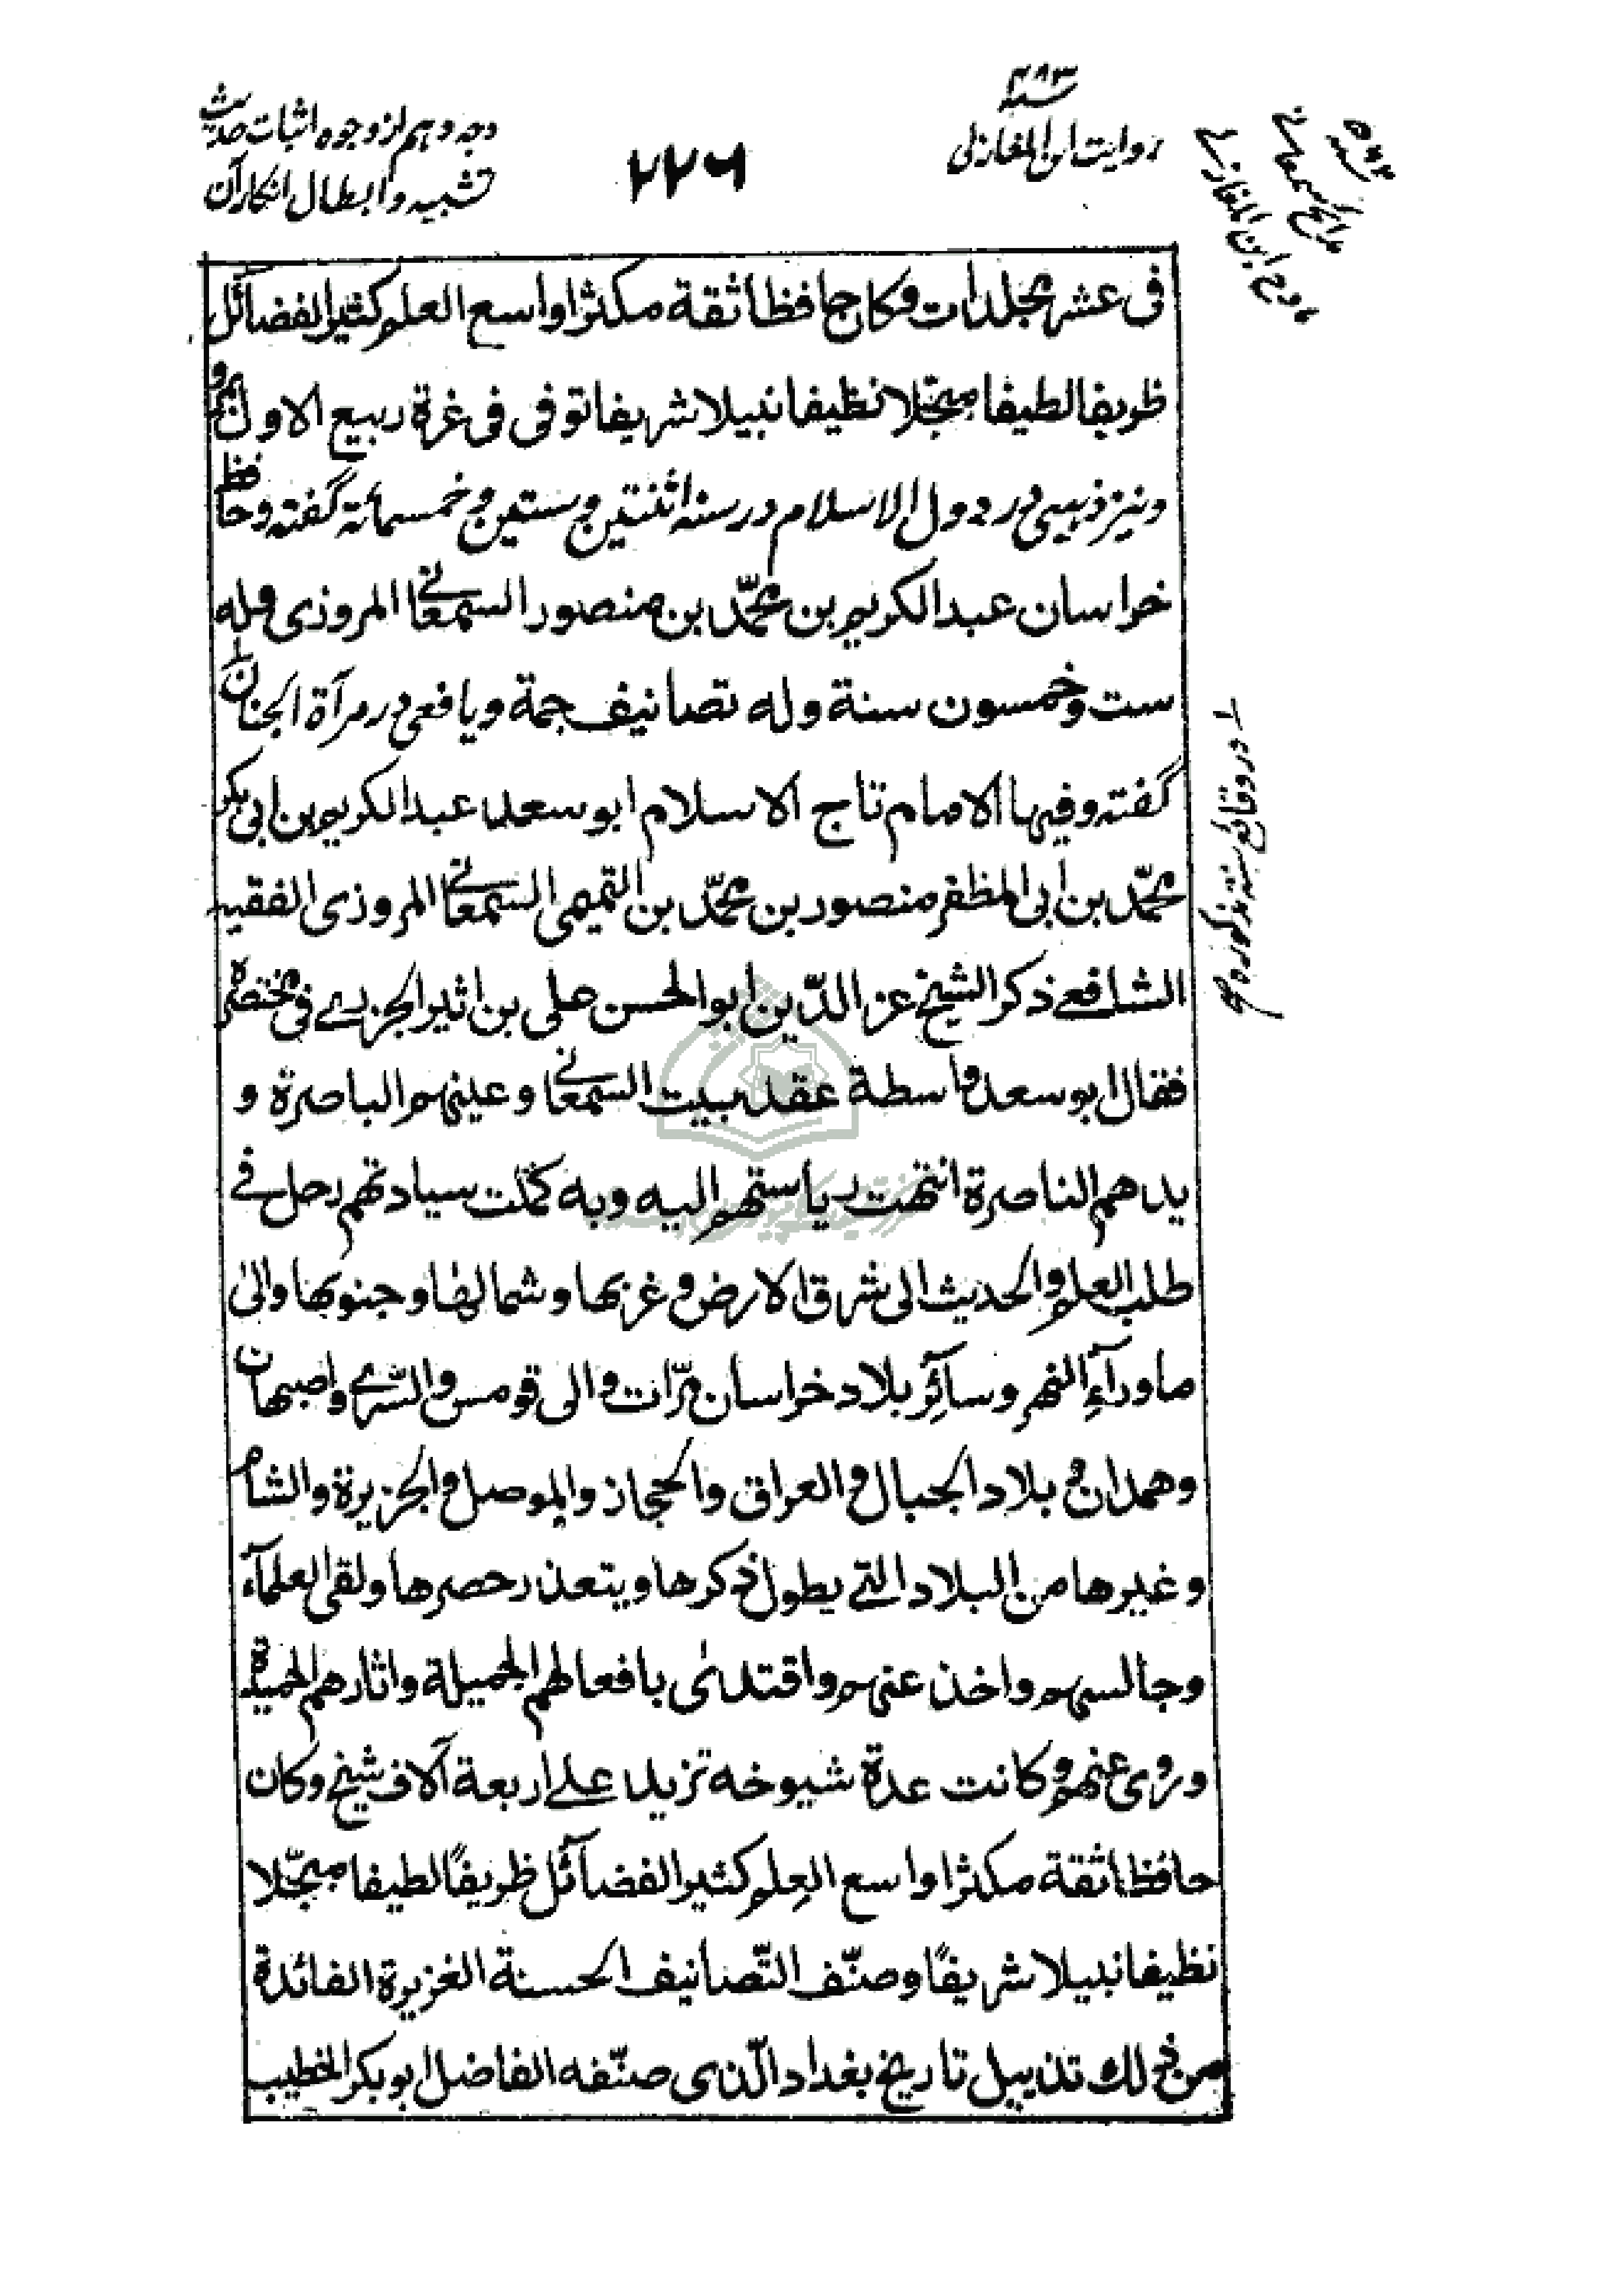 سنه ۴۸۳
روایت ابن المغازلی
۲۲۶
وجه دهم از وجوه اثبات حدیث
تشبیه و ابطال انکار آن
سنه ۵۶۲
مدائح سمعانی
ابن المغازلی
فی عشر مجلدات و کان حافظا ثقة مکثرا واسع العلم کثیر الفضائل
ظریفا لطیفا مبجّلا نظیفا نبیلا شریفا توفی فی غرة ربیع الاول بمرو
و نیز ذهبی در دول الاسلام در سنه اثنتین و ستین و خمسمائة گفته و حافظ
خراسان عبد الکریم بن محمّد بن منصور السمعانی المروزی و له
ست و خمسون سنة و له تصانیف جمة و یافعی در مرآة الجنان
گفته و فیها الامام تاج الاسلام ابو سعد عبد الکریم بن ابی بکر
محمّد بن ابی المظفر منصور بن محمّد بن التمیمی السمعانی المروزی الفقیه
الشافعے ذکر الشیخ عز الدّین ابو الحسن علی بن اثیر الجزرے فی مختصره
فقال ابو سعد واسطة عقد بیت السمعانی و عینهم الباصرة و
یدهم الناصرة انتهت ریاستهم الیه و به کملت سیادتهم رحل فے
طلب العلم و الحدیث الی شرق الارض و غربها و شمالها و جنوبها و الی
ما وراء النهر و سائر بلاد خراسان مرّات و الی قومس و الرّے و اصبهان
و همدان و بلاد الجبال و العراق و الحجاز و الموصل و الجزیرة و الشام
و غیرها من البلاد التے یطول ذکرها و یتعذر حصرها و لقی العلمآء
و جالسهم و اخذ عنهم و اقتدیٰ بافعالهم الجمیلة و اثارهم الحمیدة
و روی عنهم و کانت عدة شیوخه تزید علے اربعة آلاف شیخ و کان
حافظا ثقة مکثرا واسع العِلم کثیر الفضآئل ظریفًا لطیفا مبجّلا
نظیفا نبیلا شریفًا و صنّف التّصانیف الحسنة الغزیرة الفائدة
من ذلك تذییل تاریخ بغداد الّذی صنّفه الفاضل ابو بکر الخطیب
در وقائع سنه مذکوره صح